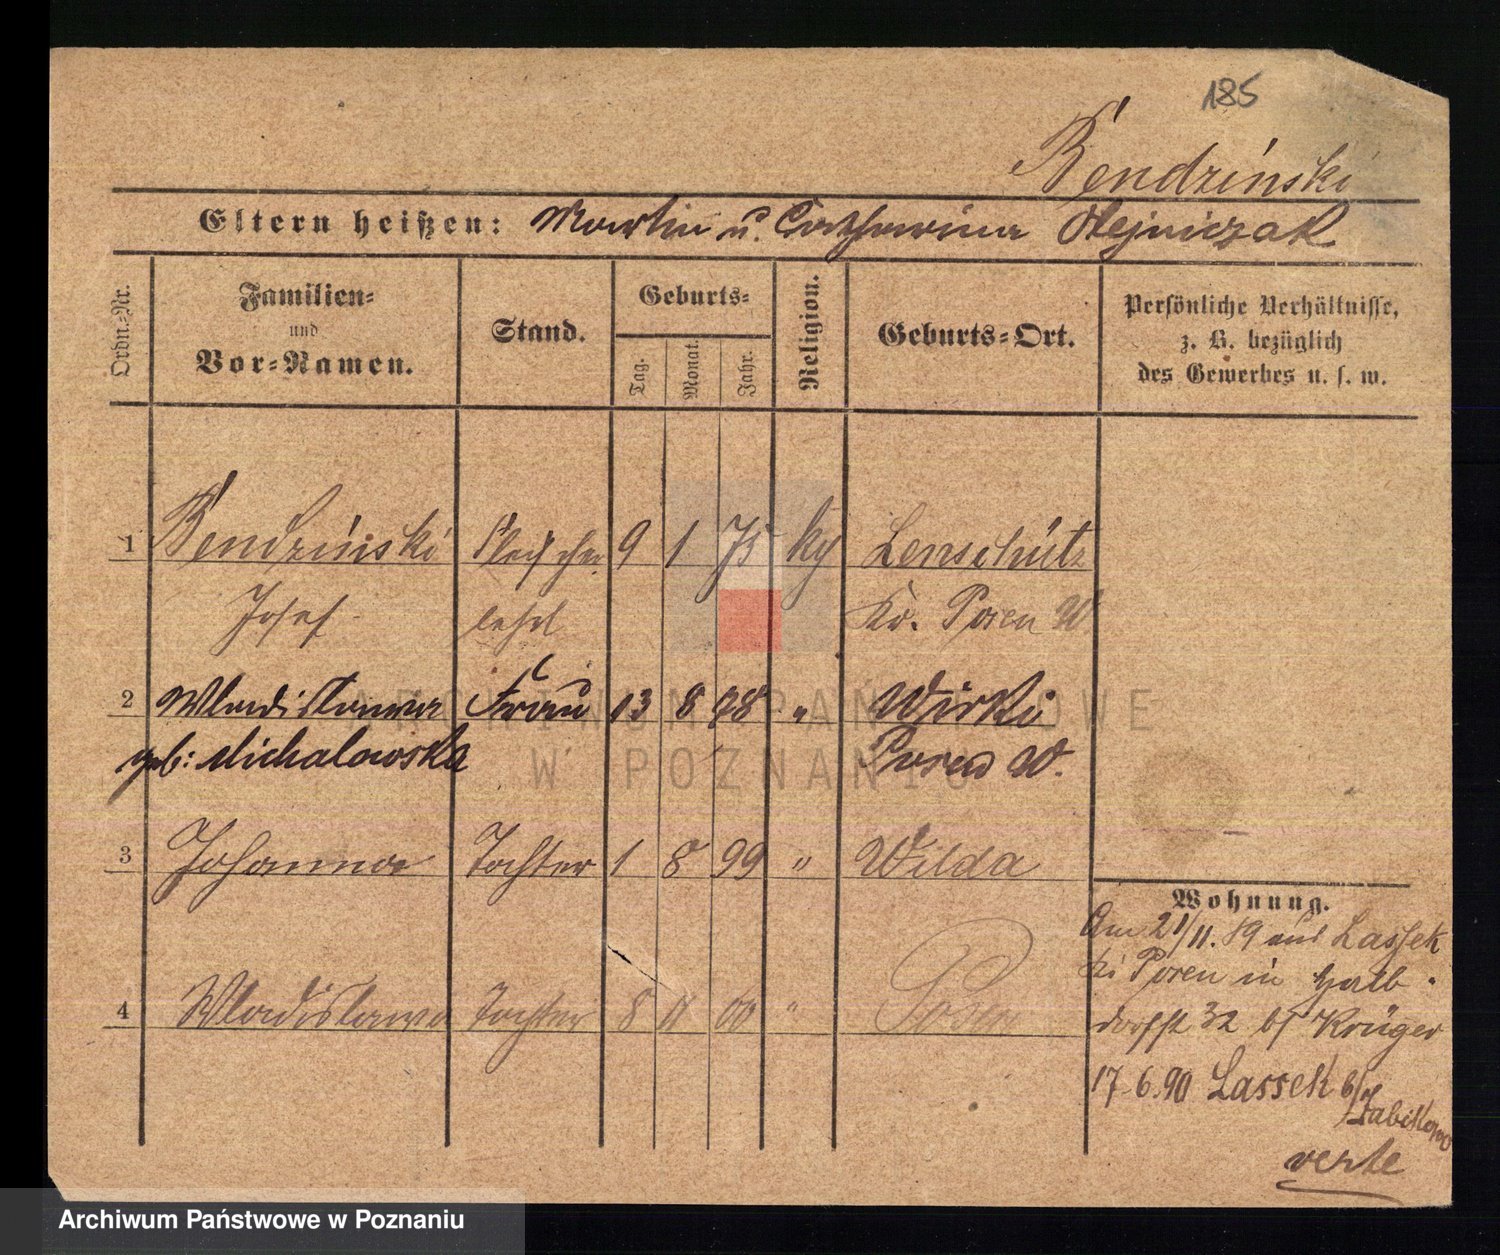 185
Bendzinski
Eltern heißen: Martin u. Catharina Olejniczak
Ordn.-Nr.
Familien-
und
Vor-Namen.
Stand.
Geburts-
Tag.
Monat.
Jahr.
Religion.
Geburts-Ort.
Persönliche Verhältnisse,
z. B. bezüglich
des Gewerbes u. s. w.
1 Bendzinski Fleischer 9 1 75 ky Lenschütz
Josef lehrl Kr. Posen W.
2 Wladislawa Frau 13 8 78 " Wirki
geb: Michalowska Posen W.
3 Johanna Tochter 1 8 99 " Wilda
4 Wladislawa Tochter 8 11 00 " Posen
Wohnung.
Am 21/11. 89 aus Lassek
Kr Posen in Halb-
dorfst 32 bf Krüger
17.6.90 Lassek b/Zabikowo
verte
ARCHIWUM PAŃSTWOWE
W POZNANIU
Archiwum Państwowe w Poznaniu